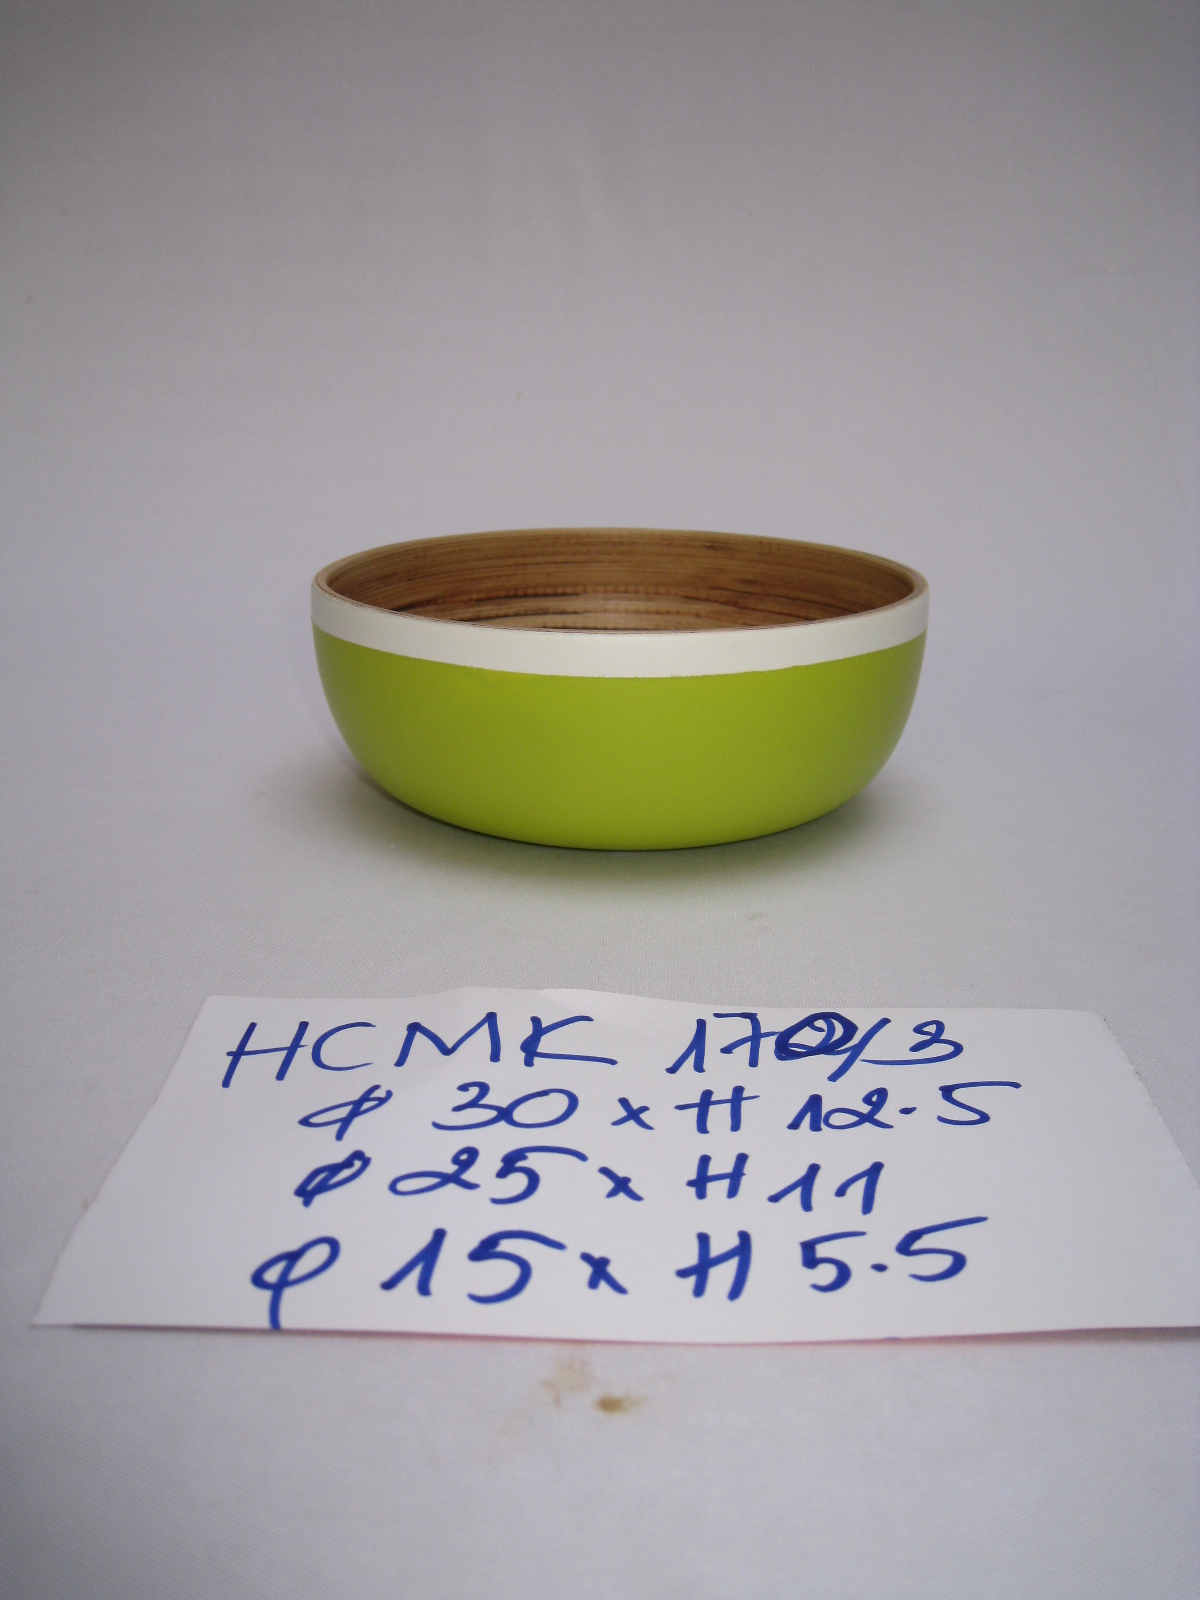 HCMK 172/3
φ 30 x H 12.5
φ 25 x H 11
φ 15 x H 5.5